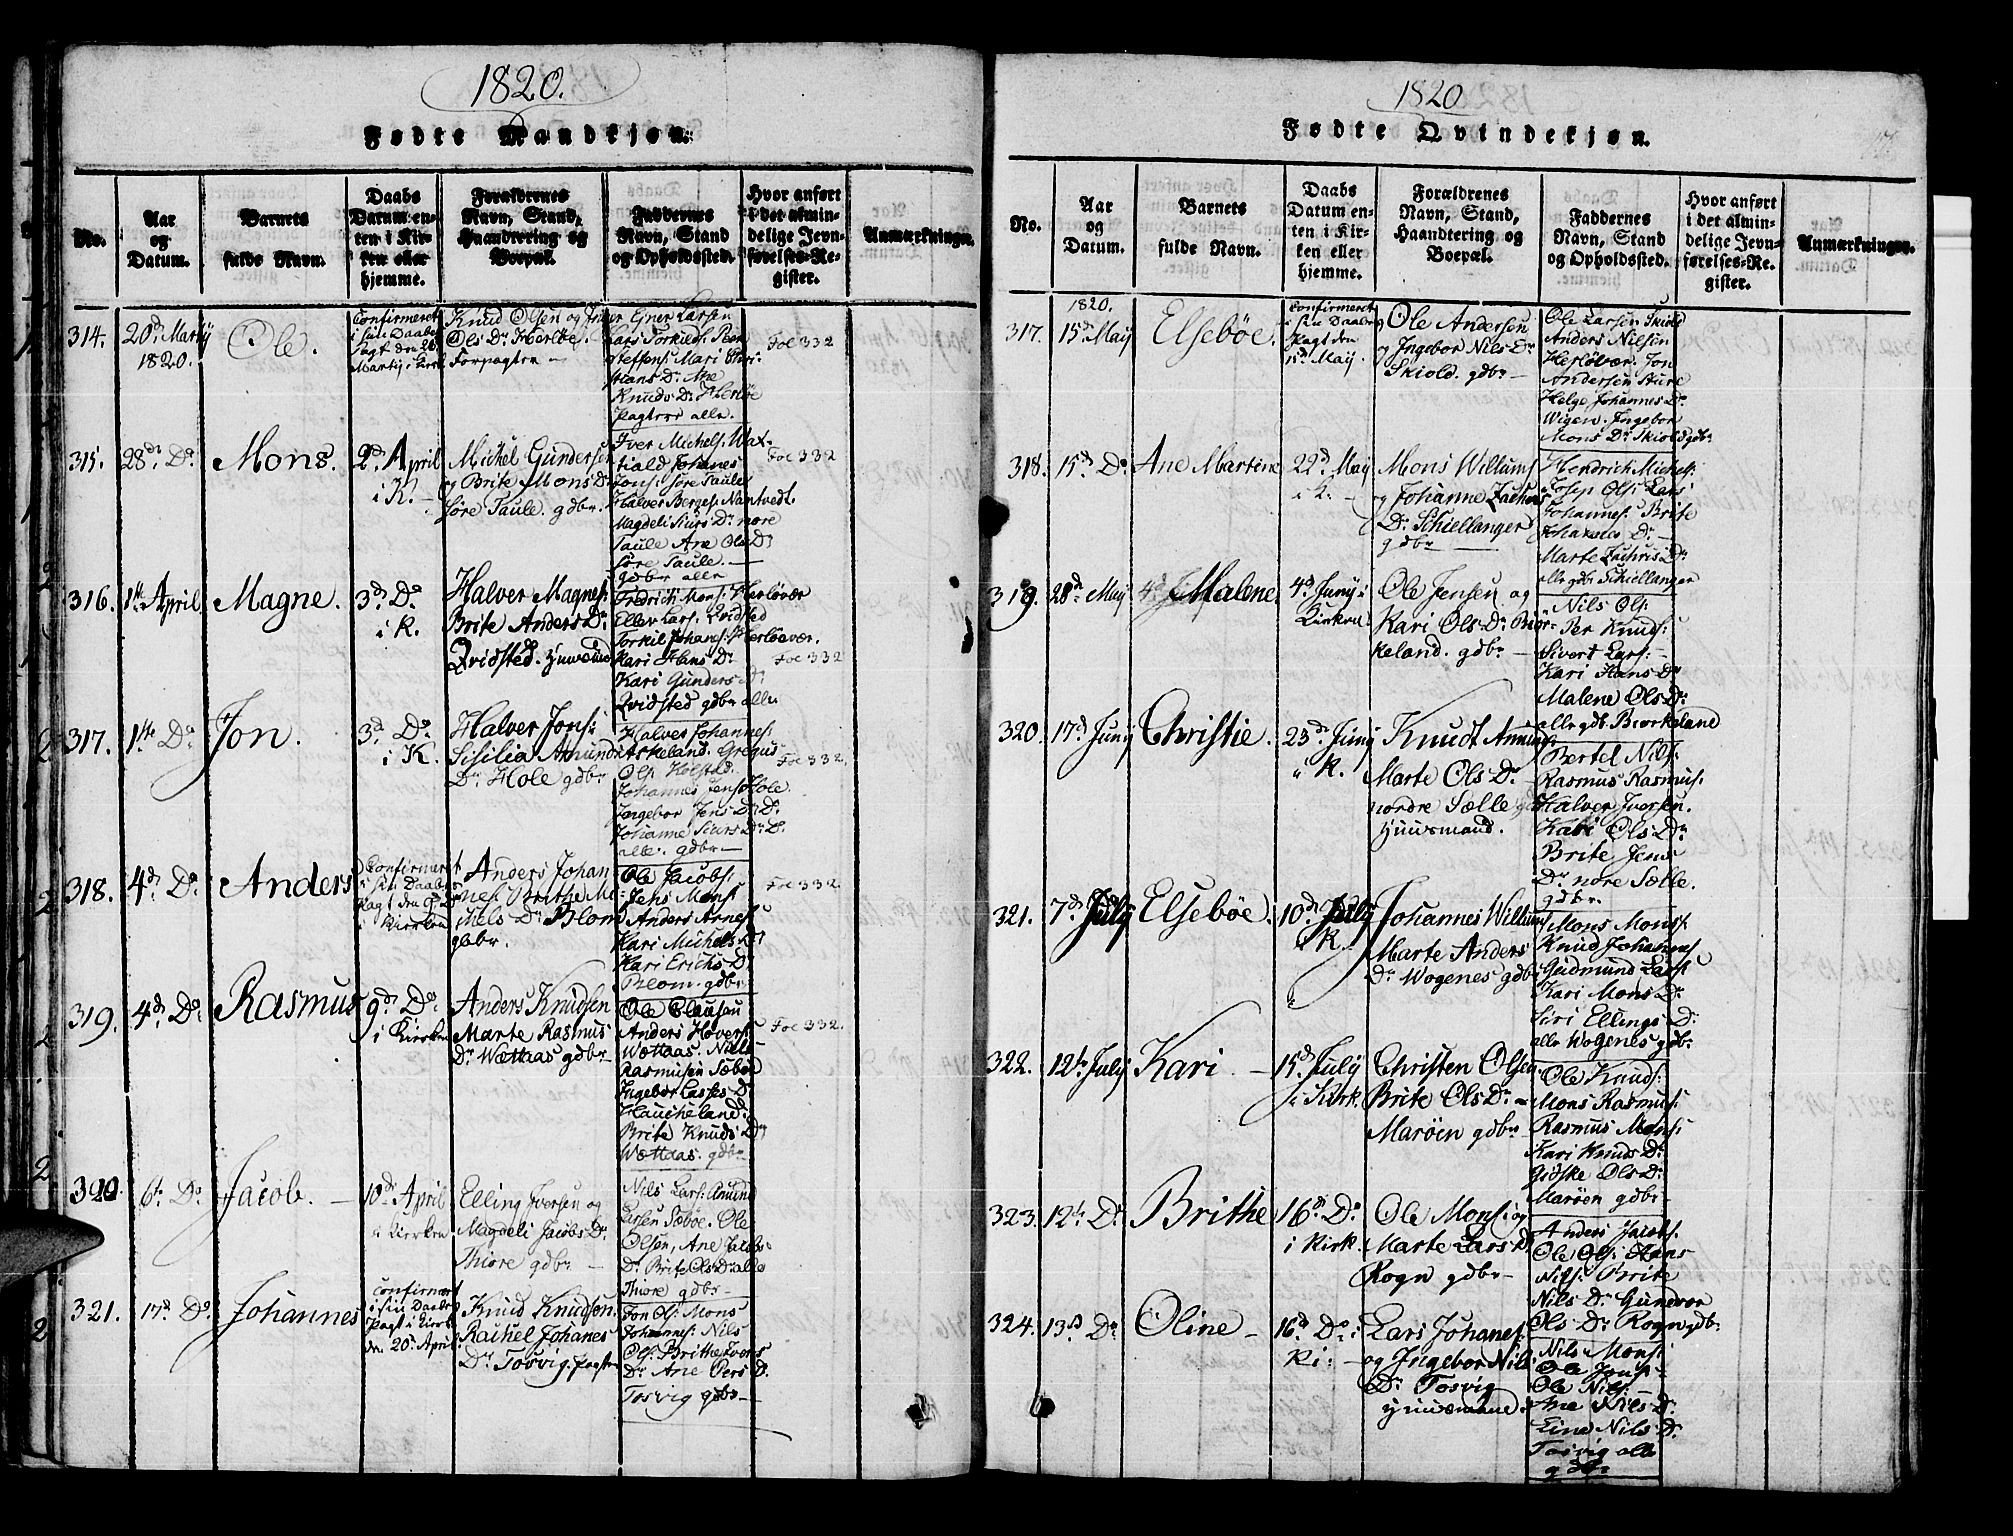 1820.
Fødte Mandkjøn.
No.
Aar
og
Datum.
Barnets
fulde Navn.
Daabs
Datum en-
ten i Kir-
ken eller
hjemme.
Forældrenes
Navn, Stand,
Haandtering og
Boepæl.
Faddernes
Navn, Stand
og Opholdssted.
Hvor anført
i det almin-
delige Jevn-
førelses-Re-
gister.
Anmærkninger.
314.
20d. Martij
1820.
Ole.
Confirmeret
i sin Daabs
Pagt den 26.
Martij i Kirk
Knud Olsen og
Ols Dr. Herløe
Forpagter
Egner Larsen
Lars Torkilds. Peer
Steffens. Mari
Hans Dr. Ane
Knuds Dr. Herløe
Pagtere alle.
Foe 332
315.
28d. Do.
Mons.
2d. April
i K.
Michel Gundersen
og Brite Mons Dr.
Søre Taule. gdbr.
Iver Michels.
Johanes
Jons. Søre Taule
Halver Berges. Nantvedt.
Magdeli Siurs Dr. nore
Taule Ane Ols Dr.
Søre Taule.
gdbr alle
Foe 332
316.
1te April
Magne.
3d. Do
i K.
Halver Magnes.
Brite Anders Dr.
Qvidsted. Huusmd
Fredrich Mons. Herløevær
Eller Lars. Qvidsted
Torkil Johans. Herløevær.
Kari Hans Dr.
Kari Gunders Dr.
Qvidsted gdbr alle
Foe 332
317.
1te Do
Jon.
3d. Do
i K.
Halver Jons.
Sisilia Amunds
Dr. Hole gdbr
Halver Johannes.
Askeland. Gregus
Ols. Holstad.
Johannes Jens Hole
Ingebor Jens Dr. Do.
Johanne Siurs Dr. Do.
alle. gdbr
Foe 332.
318.
4d. Do
Anders
Confirmeret
i sin Daabs
Pagt den 9. Do
i Kierken
Anders Johan
nes. Brithe Mi-
chels Dr. Blom
gdbr.
Ole Jacobs.
Jens Mons.
Anders Arnes.
Kari Michels Dr.
Kari Erichs Dr.
Blom. gdbr
Foe 332.
319.
4d. Do
Rasmus
9d. Do.
i Kierken
Anders Knudsen
Marte Rasmus
Dr. Wættaas gdbr
Ole Clausau
Anders Havers.
Wættaas. Niels
Rasmusen Sæbøe
Ingebor Lasses Dr.
Haucheland.
Brite Knuds Dr.
Wættaas. gdbr
Foe 332.
320.
6te Do
Jacob.
10d. April
i Kierken
Elling Iversen og
Magdeli Jacobs Dr.
Thiore gdbr
Nils Lars. Amund
Larsen Sæbøe. Ole
Olsen, Ane Jacobs
Dr. Brite Ols Dr. alle
Thiore gdbr
321.
17d. Do
Johannes
Confirmeret
i sin Daabs
Pagt i Kirk
den 20. April
Knud Knudsen.
Rachel Johanes
Dr. Tosvig. Pagter
Jon Ols. Mons
Johannes. Nils
Ols. Brithe Ivers
Dr. Ane Pers Dr.
Tosvig gdbr
1820
Fødte Qvindekjøn.
No.
Aar
og
Datum.
Barnets
fulde Navn.
Daabs
Datum en-
ten i Kir-
ken eller
hjemme.
Forældrenes
Navn, Stand,
Haandtering og
Boepæl.
Faddernes
Navn, Stand
og Opholdssted.
Hvor anført
i det almin-
delige Jevn-
førelses-Re-
gister.
Anmærkninger.
317.
1820.
15d. Maij
Elsebøe.
Confirmeret
i sin Daabs
Pagt den
Maij.
Ole Andersen
og Ingebor Nils Dr
Skiold. gdbr
Ole Larsen Skiold
Anders Nilsen
Herløevær. Jon
Andersen Sture
Helge Johannes Dr.
Wigen. Ingebor
Mons Dr. Skiold gdbr
318.
15d. Do.
Ane Martine
22d. Maij
i K.
Mons Willums
og Johanne Zachris
Dr. Schiellanger
gdbr
Hendrich Michels.
Josep Ols. Lars
Johannes. Brite
Johannes Dr.
Marte Zachris Dr.
alle gdbr Schiellanger
319.
28d. Maij
Malene.
4d. Junij i
Kirken
Ole Jensen og
Kari Ols Dr. Biör-
keland. gdbr
Nils Ols.
Per Knuds.
Sivert Lars.
Kari Hans Dr
Malene Ols Dr.
alle gdb. Biørkeland
320.
17d. Junij
Christie.
23d. Junij
i K.
Knudt Amunds.
Marte Ols Dr.
nordre Sælle
Huusmand.
Bertel Nils.
Rasmus Rasmus.
Halver Iversen.
Kari Ols Dr.
Brite Jens
Dr. nore Sælle.
gdbr
321.
7d. July
Elsebøe.
10d. July
i K.
Johannes Willums
Marte Anders
Dr. Wogenes gdbr
Mons Mons.
Knud Johannes.
Gudmund Lars.
Kari Mons Dr.
Siri Ellings Dr.
alle Wogenes gdbr
322.
12te July
Kari.
15d. July
i Kirk.
Christen Olsen
Brite Ols Dr.
Marøen gdbr
Ole Knuds.
Mons Rasmus.
Rasmus Mons.
Kari Knuds Dr.
Gidske Ols Dr.
Marøen gdbr
323.
12te Do
Brithe
16d. Do
i Kirk.
Ole Mons. og
Marte Lars Dr
Rogn gdbr
Anders Jacobs.
Ole Ols. Hans
Nils. Brite
Nils Dr. Gundvor
Ols Dr. Rogn gdbr
324.
13d. Do
Oline
16d. Do. i
Ki.
Lars Johanes.
og Ingebor Nils
Dr. Tosvig
Huusmand.
Nils Mons.
Ole Jons.
Ole Nils.
Ane Nils Dr.
Eine Nils Dr.
Tosvig alle
gdbr